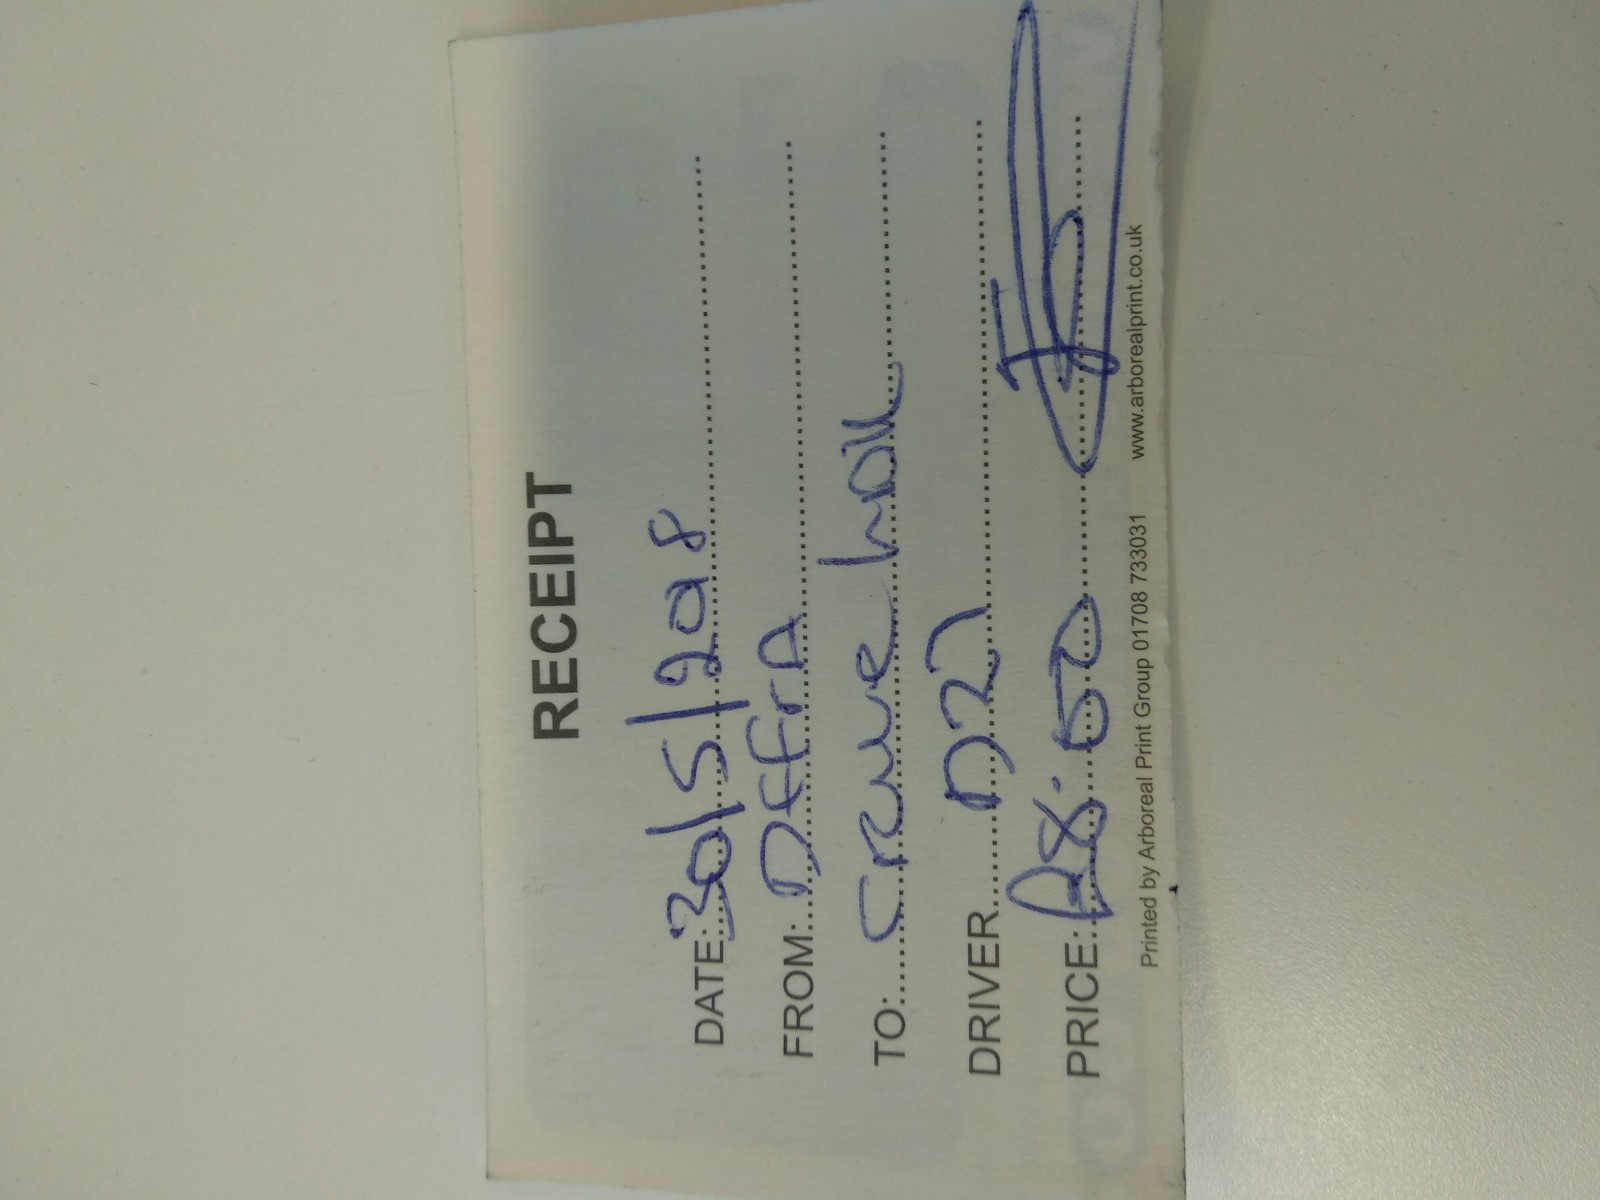 RECEIPT
DATE: 30/5/2018
FROM: Deffra
TO: Crewe hall
DRIVER D27
PRICE: £8.50
Printed by Arboreal Print Group 01708 733031 www.arborealprint.co.uk